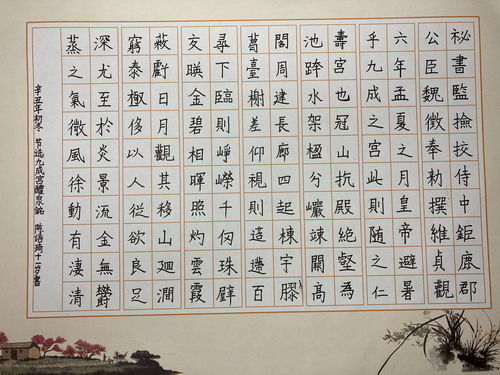 祕書監撿挍侍中鉅鹿郡
公臣魏徵奉勅撰維貞觀
六年孟夏之月皇帝避暑
乎九成之宮此則随之仁
壽宮也冠山抗殿絶壑為
池跨水架楹分巗竦闕高
閣周建長廊四起棟宇膠
葛臺榭差仰視則迢遰百
尋下臨則崢嶸千仞珠璧
交暎金碧相暉照灼雲霞
蔽虧日月觀其移山迴澗
窮泰極侈以人從欲良足
深尤至於炎景流金無鬱
蒸之氣微風徐動有淒清
辛丑年初冬 节选九成宫醴泉銘 陈语琦十一岁書